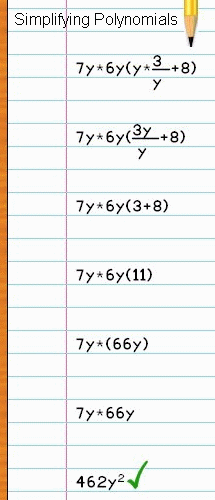 Simplifying Polynomials
7y*6y(y*3/y+8)
7y*6y(3y/y+8)
7y*6y(3+8)
7y*6y(11)
7y*(66y)
7y*66y
462y²